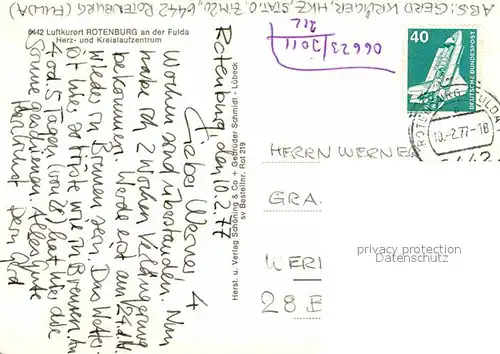 ABS: GERD KRÜGER, HKZ, STAT. O, ZIM 20, 6442 ROTENBURG (FULDA)
6442 Luftkurort ROTENBURG an der Fulda
Herz- und Kreislaufzentrum
Rotenburg, den 10.2.77
Lieber Werner! 4
Wochen sind überstanden. Nun
habe ich 2 Wochen Verlängerung
bekommen. Werde erst am 24.2.
wieder in Bremen sein. Das Wetter
ist hier so triste wie in Bremen. An
4 od 5 Tagen (von 28) hat hier die
Sonne geschienen. Alles Gute
Herzlichst
Dein Gerd
Herst. u. Verlag Schöning & Co + Gebrüder Schmidt - Lübeck
sv Bestellnr. Rot 219
06623/2011
40
DEUTSCHE BUNDESPOST
10.-2.77-18
HERRN WERNER
GRA
WER
28 B
privacy protection
Datenschutz